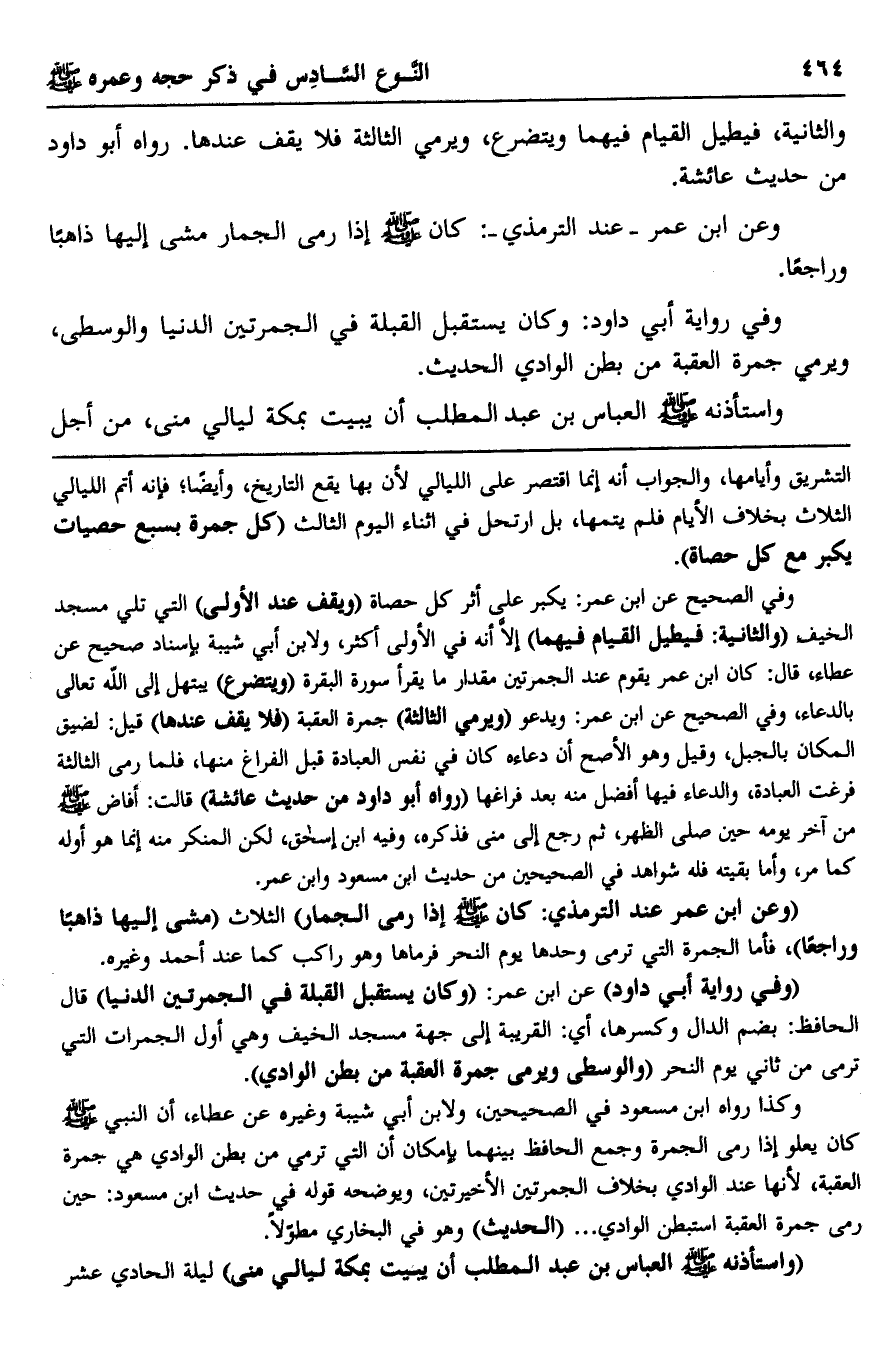 ٤٦٤ النَّوع السَّادِس في ذكر حجه وعمره ﷺ
والثانية، فيطيل القيام فيهما ويتضرع، ويرمي الثالثة فلا يقف عندها. رواه أبو داود
من حديث عائشة.
وعن ابن عمر ـ عند الترمذي ـ: كان ﷺ إذا رمى الجمار مشى إليها ذاهبًا
وراجعًا.
وفي رواية أبي داود: وكان يستقبل القبلة في الجمرتين الدنيا والوسطى،
ويرمي جمرة العقبة من بطن الوادي الحديث.
واستأذنه ﷺ العباس بن عبد المطلب أن يبيت بمكة ليالي منى، من أجل
التشريق وأيامها، والجواب أنه إنما اقتصر على الليالي لأن بها يقع التاريخ، وأيضًا؛ فإنه أتم الليالي
الثلاث بخلاف الأيام فلم يتمها، بل ارتحل في اثناء اليوم الثالث (كل جمرة بسبع حصيات
يكبر مع كل حصاة).
وفي الصحيح عن ابن عمر: يكبر على أثر كل حصاة (ويقف عند الأولى) التي تلي مسجد
الخيف (والثانية: فيطيل القيام فيهما) إلاَّ أنه في الأولى أكثر، ولابن أبي شيبة بإسناد صحيح عن
عطاء، قال: كان ابن عمر يقوم عند الجمرتين مقدار ما يقرأ سورة البقرة (ويتضرع) يبتهل إلى اللّه تعالى
بالدعاء، وفي الصحيح عن ابن عمر: ويدعو (ويرمي الثالثة) جمرة العقبة (فلا يقف عندها) قيل: لضيق
المكان بالجبل، وقيل وهو الأصح أن دعاءه كان في نفس العبادة قبل الفراغ منها، فلما رمى الثالثة
فرغت العبادة، والدعاء فيها أفضل منه بعد فراغها (رواه أبو داود من حديث عائشة) قالت: أفاض ﷺ
من آخر يومه حين صلى الظهر، ثم رجع إلى منى فذكره، وفيه ابن إسحٰق، لكن المنكر منه إنما هو أوله
كما مر، وأما بقيته فله شواهد في الصحيحين من حديث ابن مسعود وابن عمر.
(وعن ابن عمر عند الترمذي: كان ﷺ إذا رمى الجمار) الثلاث (مشى إليها ذاهبًا
وراجعًا)، فأما الجمرة التي ترمى وحدها يوم النحر فرماها وهو راكب كما عند أحمد وغيره.
(وفي رواية أبي داود) عن ابن عمر: (وكان يستقبل القبلة في الجمرتين الدنيا) قال
الحافظ: بضم الدال وكسرها، أي: القريبة إلى جهة مسجد الخيف وهي أول الجمرات التي
ترمى من ثاني يوم النحر (والوسطى ويرمى جمرة العقبة من بطن الوادي).
وكذا رواه ابن مسعود في الصحيحين، ولابن أبي شيبة وغيره عن عطاء، أن النبي ﷺ
كان يعلو إذا رمى الجمرة وجمع الحافظ بينهما بإمكان أن التي ترمي من بطن الوادي هي جمرة
العقبة، لأنها عند الوادي بخلاف الجمرتين الأخيرتين، ويوضحه قوله في حديث ابن مسعود: حين
رمى جمرة العقبة استبطن الوادي... (الحديث) وهو في البخاري مطوّلاً.
(واستأذنه ﷺ العباس بن عبد المطلب أن يبيت بمكة ليالي منى) ليلة الحادي عشر